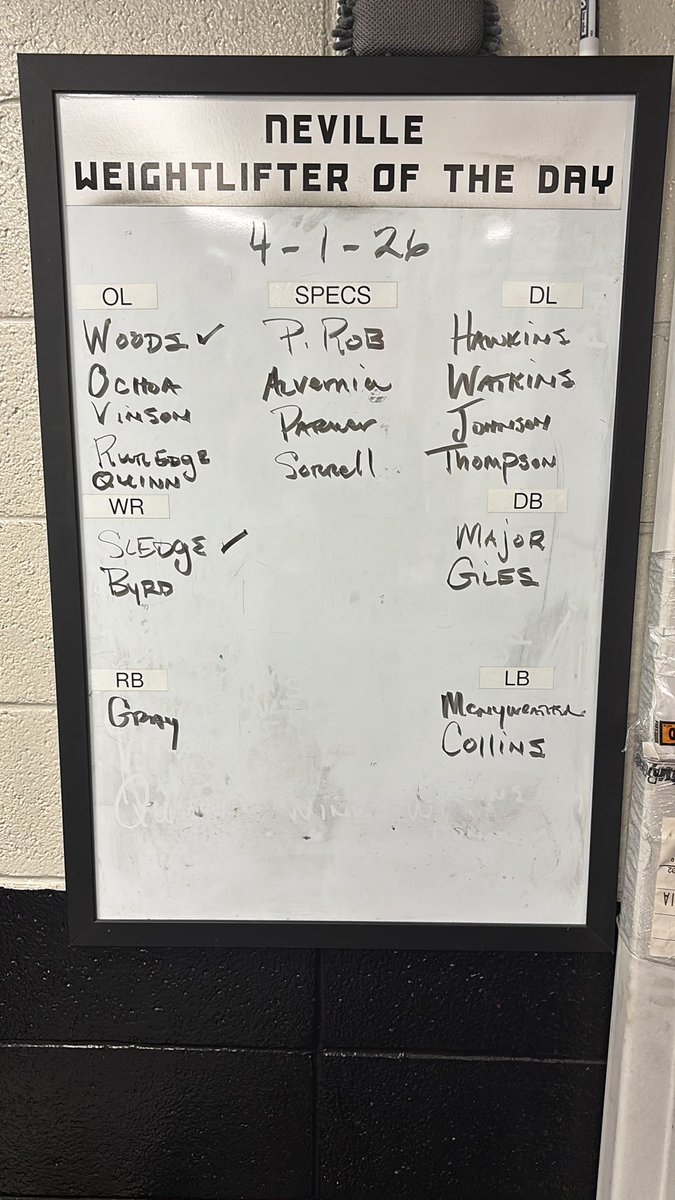 NEVILLE
WEIGHTLIFTER OF THE DAY
4-1-26
OL
WOODS ✓
OCHOA
VINSON
RUTLEDGE
QUINN
WR
SLEDGE ✓
BYRD
RB
GRAY
SPECS
P. ROB
Alvernia
PARKER
SORRELL
DL
HAWKINS
WATKINS
JOHNSON
THOMPSON
DB
MAJOR
GILES
LB
MERYWEATHER
COLLINS